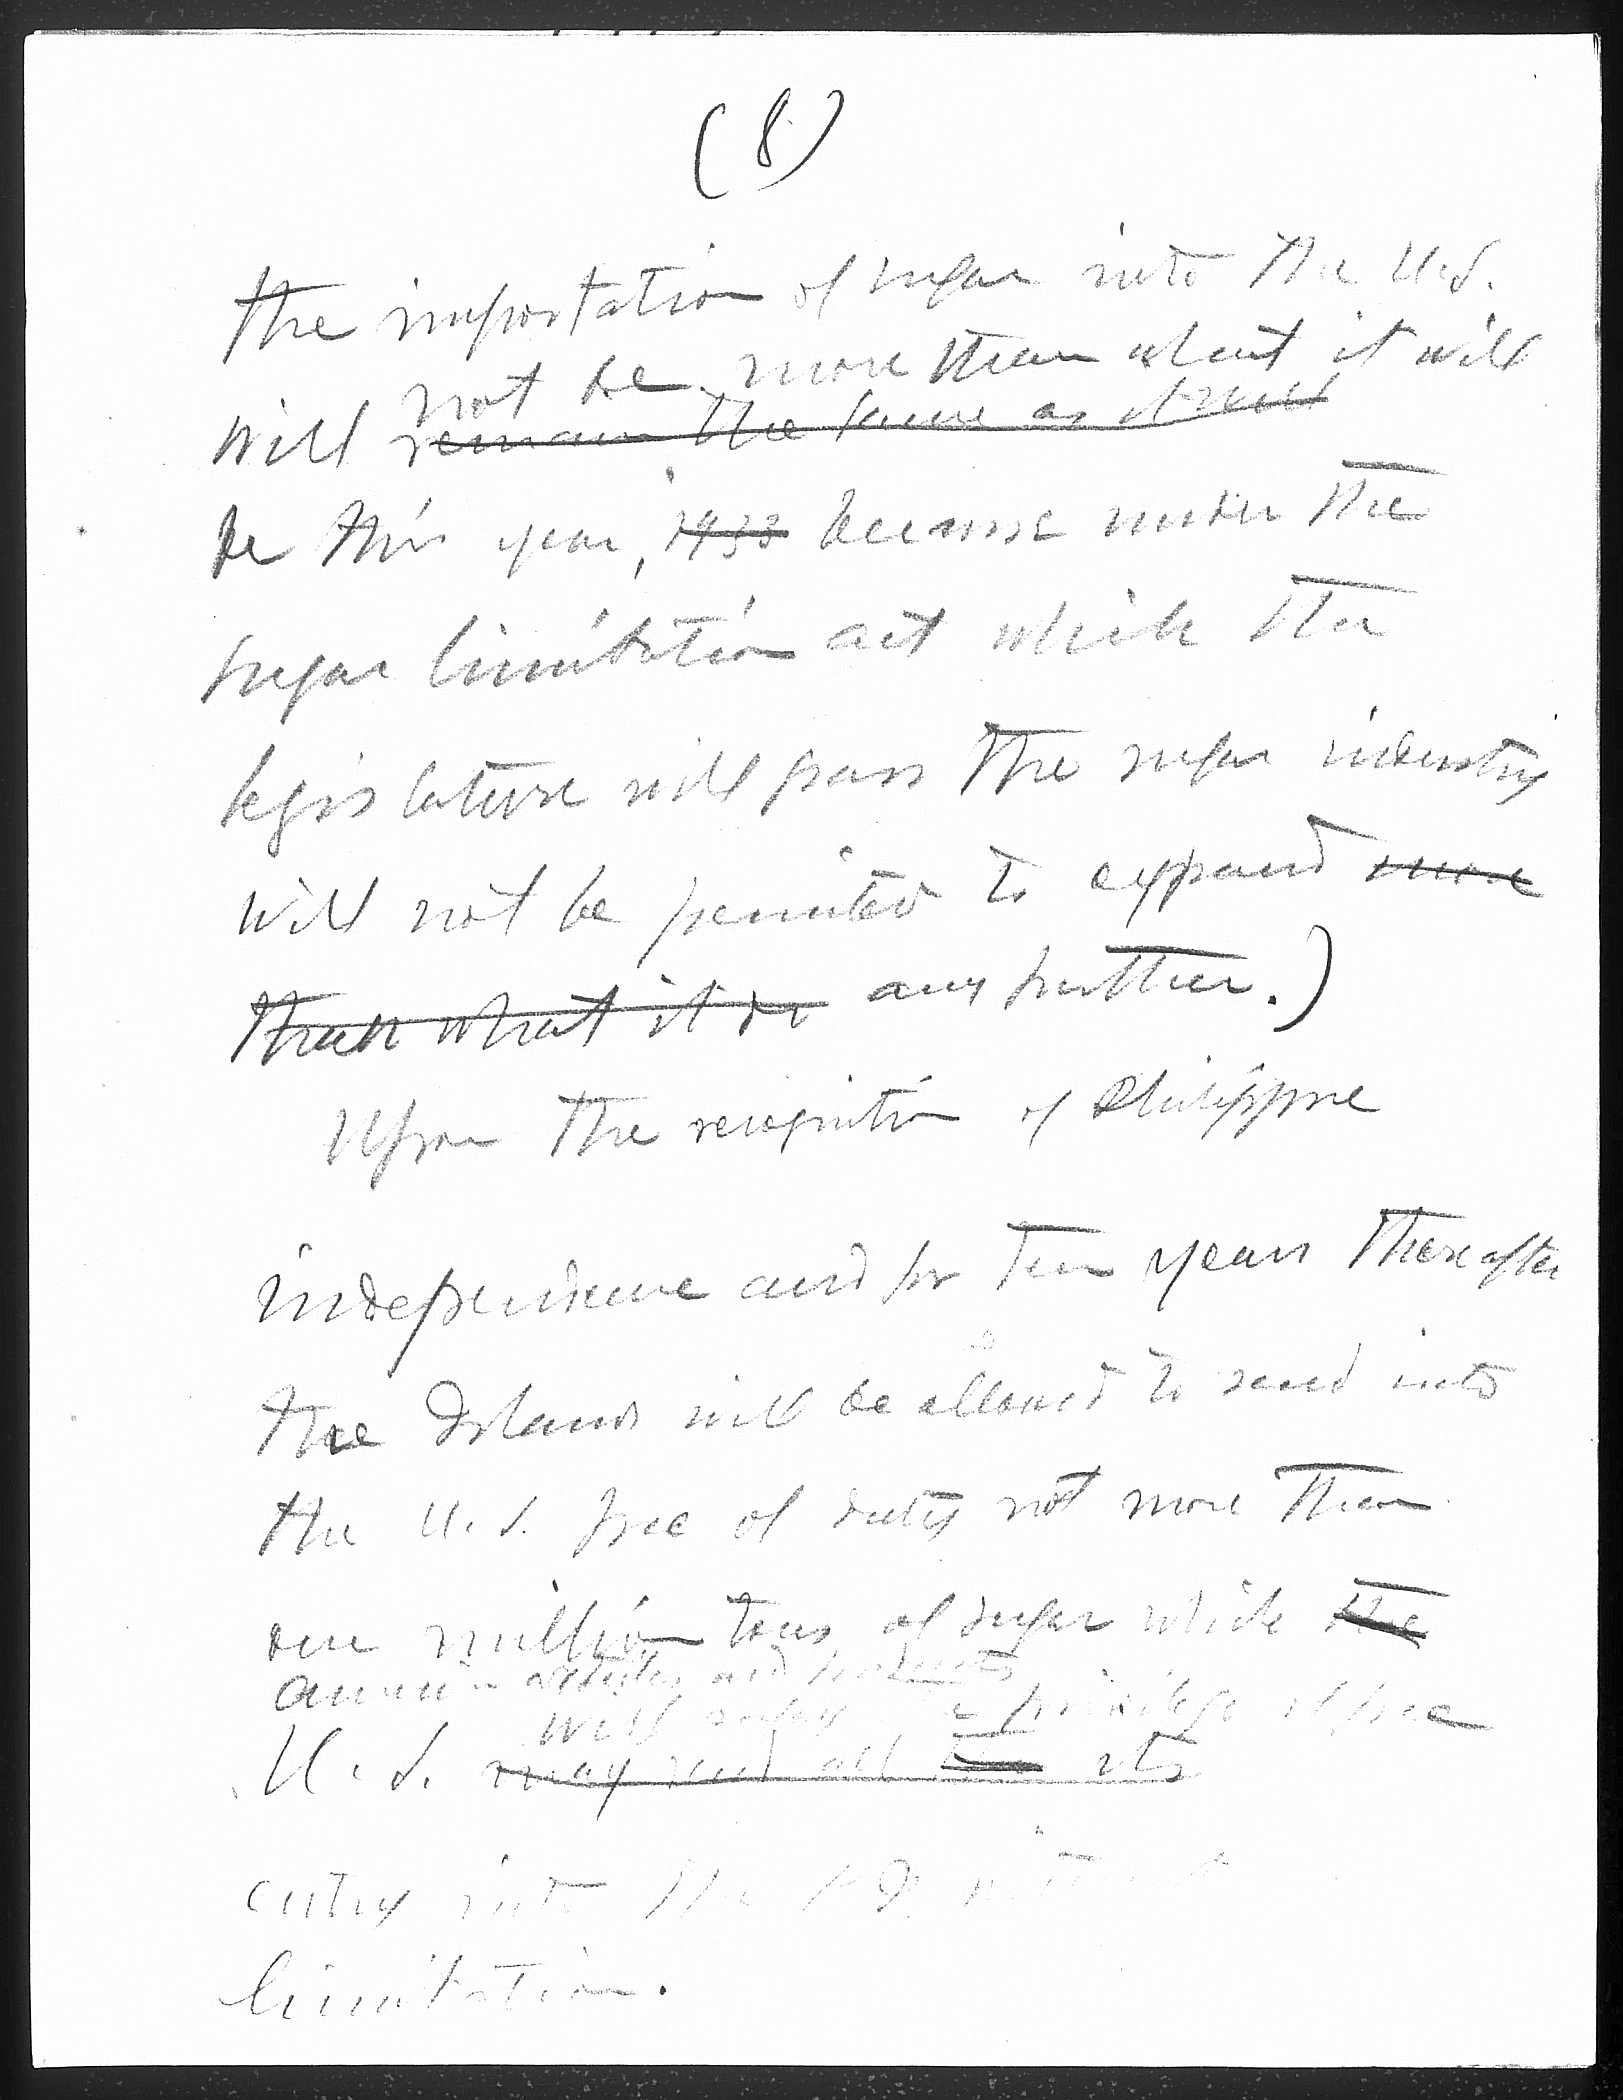 (8)
the importation of sugar into the U.S.
not be more than what it will
will remain the same as it will
be this year, 1933 because under the
sugar limitation act which the
legislature will pass the sugar industry
will not be permited to expand more
than what it is any further.)
Upon the recognition of Philippine
independence and for ten years thereafter
the Islands will be allowed to send into
the U.S. free of duty not more than
one million tons of sugar while the
American articles and products
will enjoy the privilege of free
U.S. may send all the its
entry into the P.I. without
limitation.